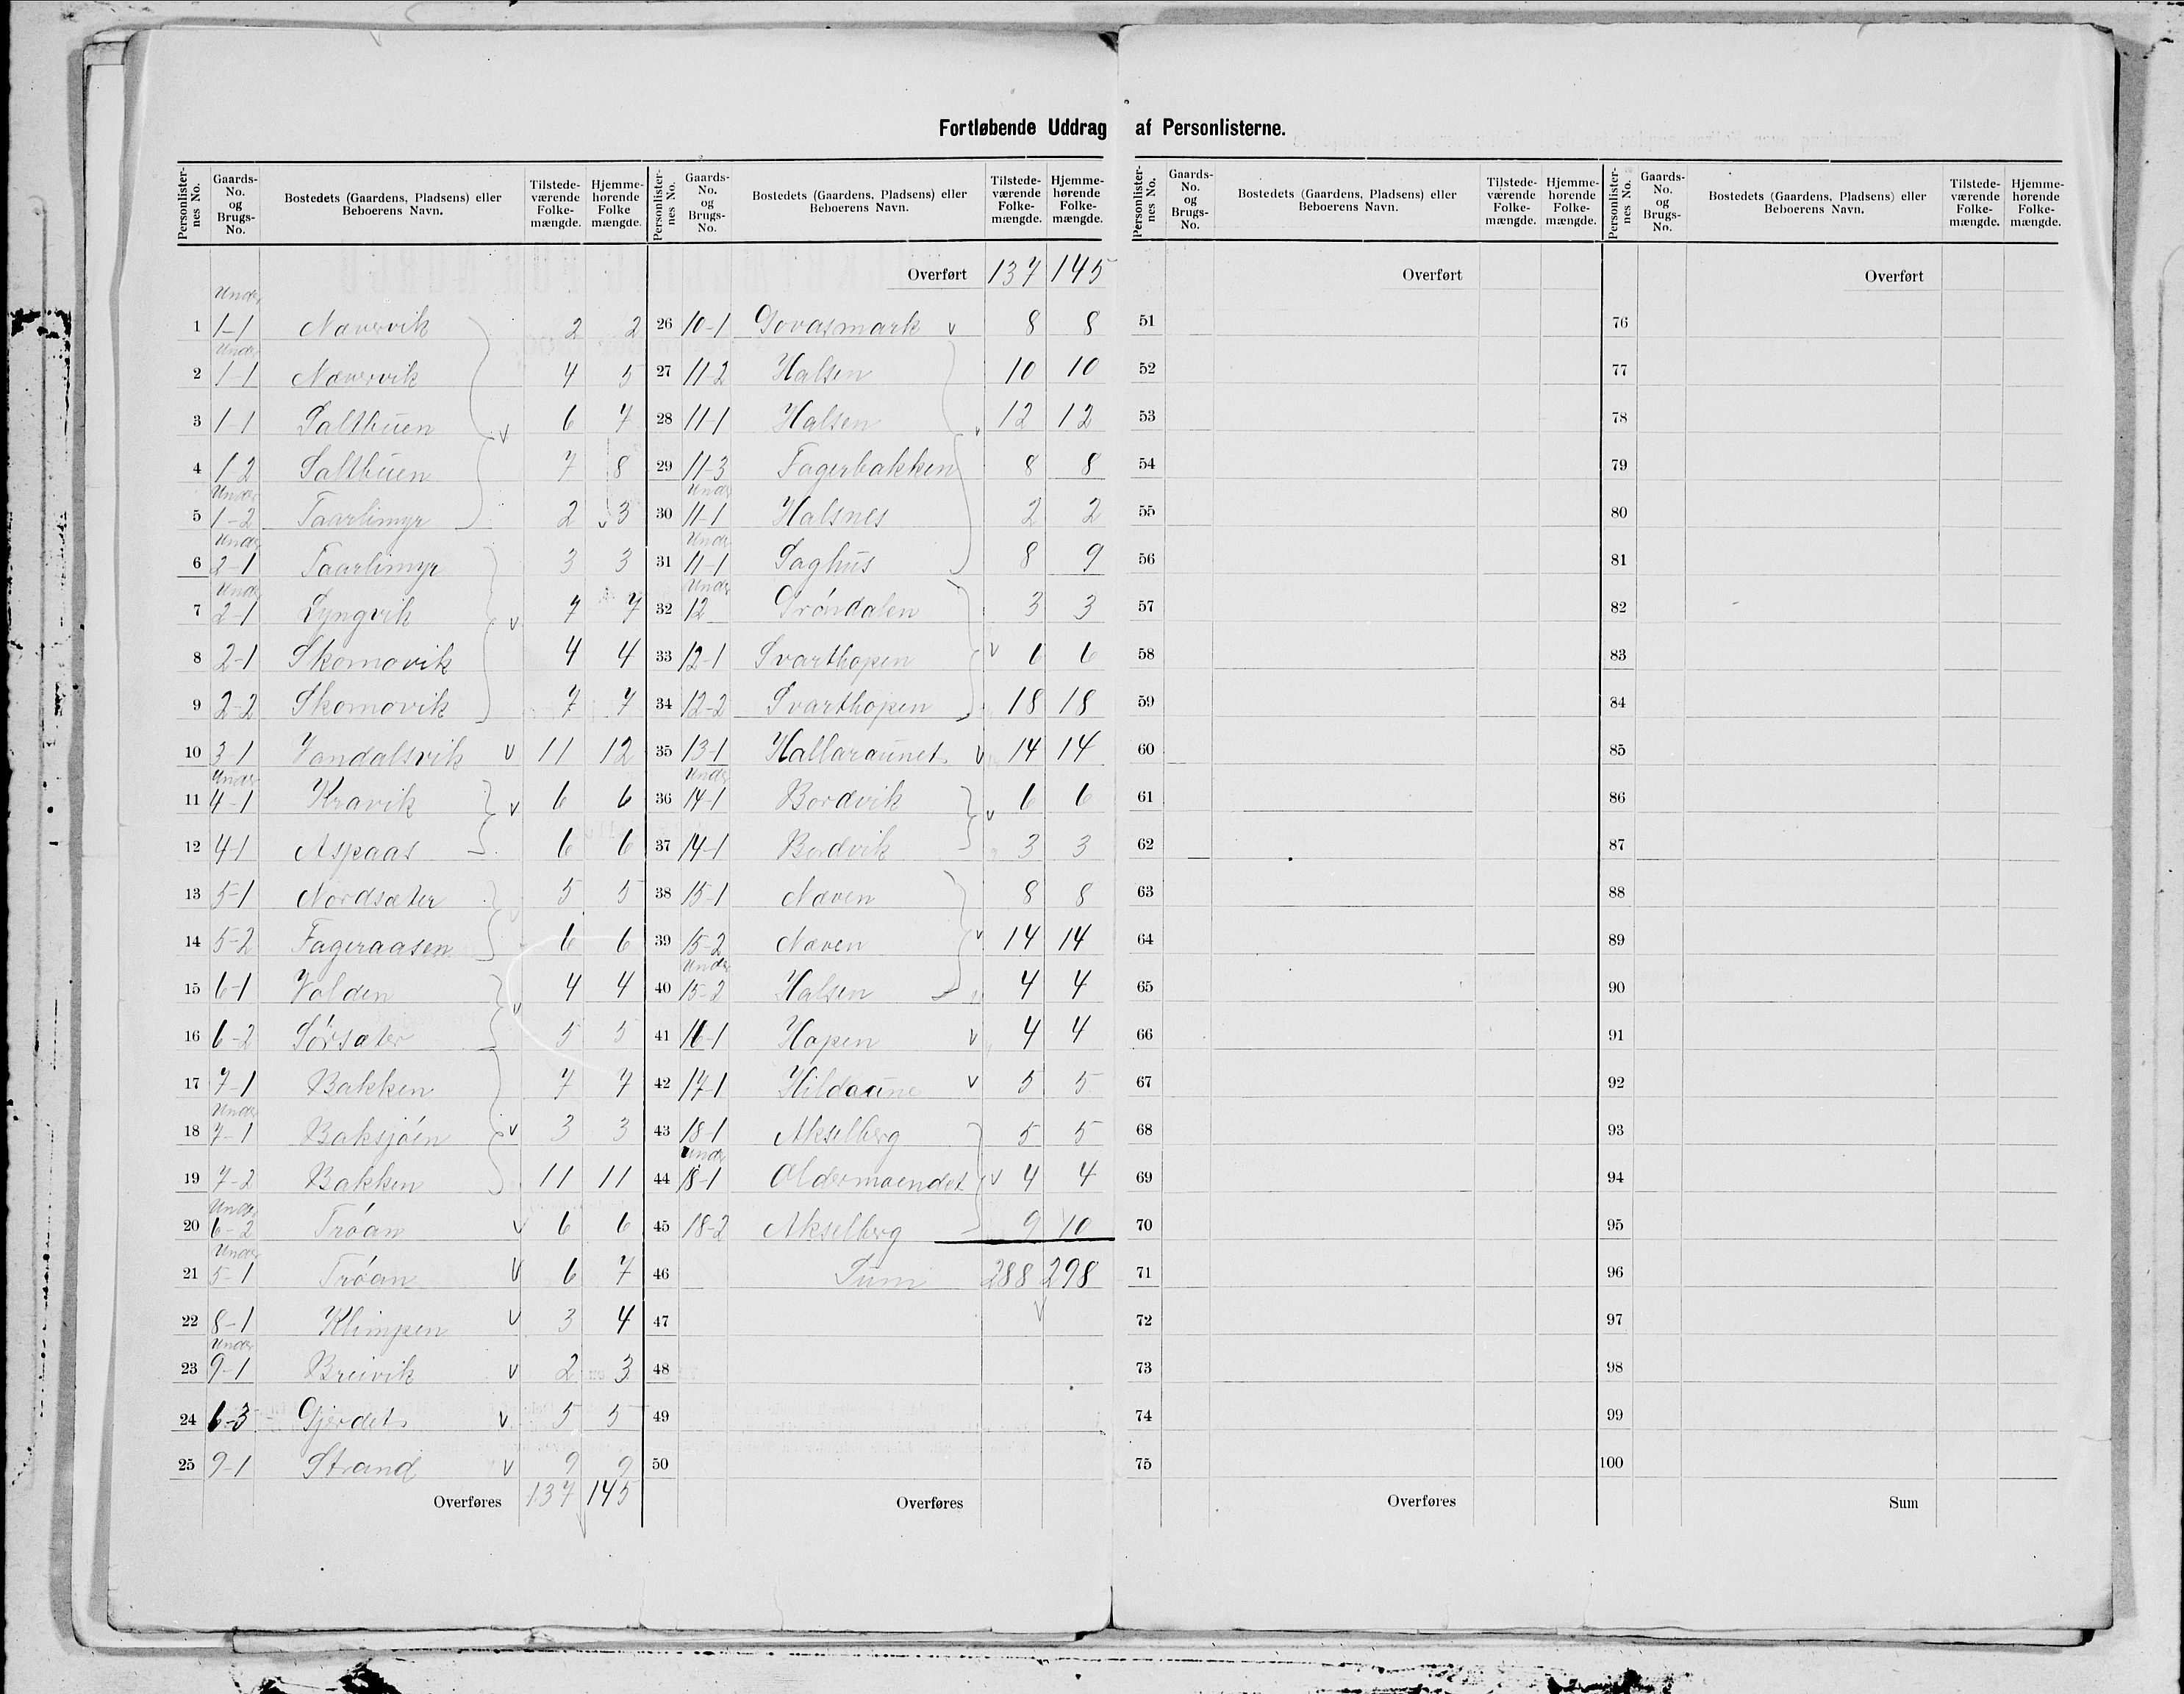 Fortløbende Uddrag af Personlisterne.
Personlister-nes No. Gaards-No. og Brugs-No. Bostedets (Gaardens, Pladsens) eller Beboerens Navn. Tilstede-værende Folke-mængde. Hjemme-hørende Folke mængde.
Under
1 1-1 Nævervik 2 2
Under
2 1-1 Nævervik 4 5
3 1-1 Saltbuen 6 7
4 1-2 Saltbuen 7 8
Under
5 1-2 Taarlimyr 2 3
Under
6 2-1 Taarlimyr 3 3
Under
7 2-1 Lyngvik 7 7
8 2-1 Skomovik 4 4
9 2-2 Skomovik 7 7
10 3-1 Vandalsvik v 11 12
Under
11 4-1 Kravik v 6 6
12 4-1 Aspaas 6 6
13 5-1 Nordsæter 5 5
14 5-2 Fageraasen 6 6
15 6-1 Volden 4 4
16 6-2 Sørsæter 5 5
17 7-1 Bakken 7 7
Under
18 7-1 Baksjøen v 3 3
19 7-2 Bakken 11 11
Under
20 6-2 Trøan v 6 6
Under
21 5-1 Trøan v 6 7
22 8-1 Klimpen v 3 4
Under
23 9-1 Breivik v 2 3
24 6-3 Gjerdet v 5 5
25 9-1 Strand v 9 9
Overføres 137 145
Personlister-nes No. Gaards-No. og Brugs-No. Bostedets (Gaardens, Pladsens) eller Beboerens Navn. Tilstede-værende Folke-mængde. Hjemme-hørende Folke-mængde.
Overført 137 145
26 10-1 Govasmark v 8 8
27 11-2 Halsen 10 10
28 11-1 Halsen v 12 12
29 11-3 Fagerbakken 8 8
Under
30 11-1 Halsnes 2 2
Under
31 11-1 Saghus 8 9
Under
32 12 Grøndalen 3 3
33 12-1 Svarthopen v 6 6
34 12-2 Svarthopen 18 18
35 13-1 Hallaraunet v 14 14
Under
36 14-1 Bordvik v 6 6
37 14-1 Bordvik 3 3
38 15-1 Næven 8 8
39 15-2 Næven v 14 14
Under
40 15-2 Halsen 4 4
41 16-1 Hopen v 4 4
42 17-1 Hildaune v 5 5
43 18-1 Akselberg 5 5
Under
44 18-1 Oldermoendet v 4 4
45 18-2 Akselberg 9 10
46 Sum 288 298
47 v
48
49
50
Overføres
Personlister-nes No. Gaards-No. og Brugs-No. Bostedets (Gaardens, Pladsens) eller Beboerens Navn. Tilstede-værende Folke-mængde. Hjemme-hørende Folke-mængde.
Overført
51
52
53
54
55
56
57
58
59
60
61
62
63
64
65
66
67
68
69
70
71
72
73
74
75
Overføres
Personlister-nes No. Gaards-No. og Brugs-No. Bostedets (Gaardens, Pladsens) eller Beboerens Navn. Tilstede-værende Folke-mængde. Hjemme-hørende Folke-mængde.
Overført
76
77
78
79
80
81
82
83
84
85
86
87
88
89
90
91
92
93
94
95
96
97
98
99
100
Sum